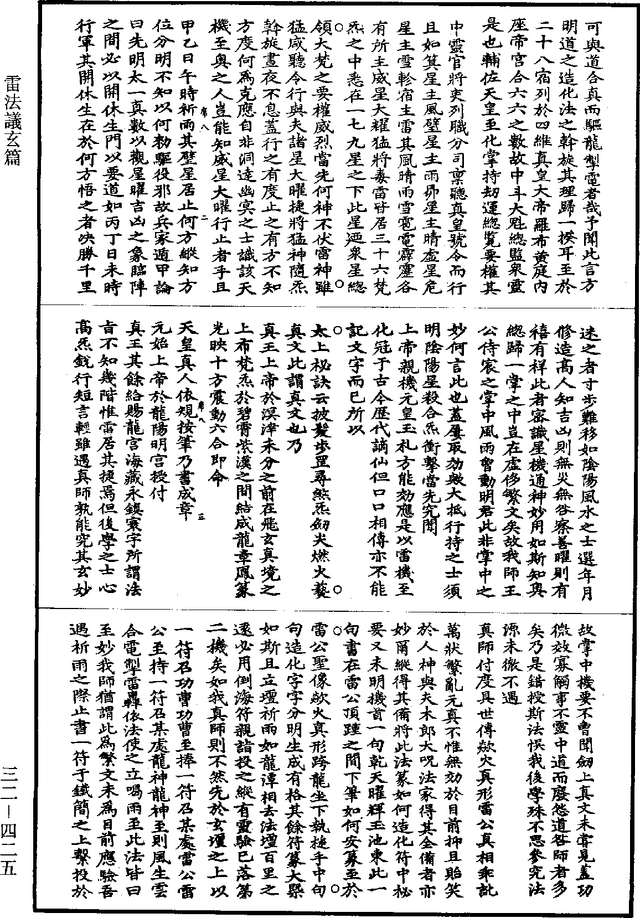 雷法議玄篇
可與道合真而驅龍掣電者哉予聞此言方
明道之造化法之幹旋其理歸一揆耳至於
二十八宿列於四維真皇大帝羅布黃庭內
座帝宮合六六之數故中斗大魁總監眾靈
是也輔佐天皇至化掌持劫運總覽要權其
中靈官將吏列職分司稟聽真皇號令而行
且如箕星主風壁星主雨昴星主晴虛星危
星主雪軫宿主雷其風晴雨雪雹電霹靂各
有所主威星大耀猛將毒雷皆居三十六梵
炁之中悉在一七九星之下此星迺眾星總
領大梵之要權威烈當先何神不伏雷神雖
猛咸聽令行與夫諸星大曜捷將猛神隨炁
幹旋晝夜不息蓋行之有度止之有方不知
方度何為克應自非洞達幽冥之士識該天
機至奧之人豈能知威星大曜行止者乎且
甲乙日午時祈雨其壁星居止何方縱知方
位分明不知以何物驅役邪故兵家遁甲論
曰先明太一真數以觀星曜吉凶之象臨陣
之間必以開休生門以要道如丙丁日未時
行軍其開休生在於何方悟之者決勝千里
迷之者寸步難移如陰陽風水之士選年月
修造高人知吉凶則無災無咎察善曜則有
禧有祥此者密識星機通神妙用如斯知與
總歸一掌之中豈在虛修繁文矣故我師王
公侍宸之掌中風雨會動明君此非掌中之
妙何言此也蓋屢取効驗大抵行持之士須
明陰陽星殺合炁衝擊當先究閱
上帝親機元皇玉札方能効應是以雷機至
化冠于古今歷代謫仙但口口相傳亦不能
記文字而已所以
太上秘訣云披髮步罡尋煞炁劒火燃火發
真文此謂真文也乃
真王上帝於溟涬未分之前在飛玄真境之
上布梵炁於碧霄紫漢之間結成龍章鳳篆
光映十方震動六合即命
天皇真人依規按筆乃書成章
元始上帝於龍陽明宮授付
真王其餘給賜龍宮海藏永鎮寰宇所謂法
旨不知幾階惟雷居其捷焉但後學之士心
高炁銳行短言輕雖遇真師孰能究其玄妙
故掌中機要不曾聞劒上真文未嘗見蓋功
微效寡觸事不靈中道而廢怨道咎師者多
矣乃是錯授斯法悞我後學殊不思參究法
源未徹不遇
真師付度具世傳歘火真形雷公真相乘訛
萬狀繁亂元真不惟無効於目前抑且貽笑
於人神與夫木郎大呪法家得其全備者亦
妙爾縱得其備將此法篆如何造化符中秘
要又未明機首一句乾天曜輝玉池東此一
句書在雷公頂踵之間下筆如何安篆至於
雷公聖像歘火真形跨龍坐下執捷手中句
句造化字字分明生成有格其餘符篆大槩
如斯且立壇祈雨如龍潭相去法壇百里之
遠必用倒海符親詣投之縱有靈驗已落第
二機矣如我真師則不然先於玄壇之上以
一符召功曹功曹至捧一符召某處雷公雷
公至持一符召某處龍神龍神至則風生雲
合電掣雷轟依法使之立喝雨至此法皆曰
至妙我師猶謂此為繁文未為目前應驗吾
遇祈雨之際止書一符于鐵簡之上繫投於
三二—四二五